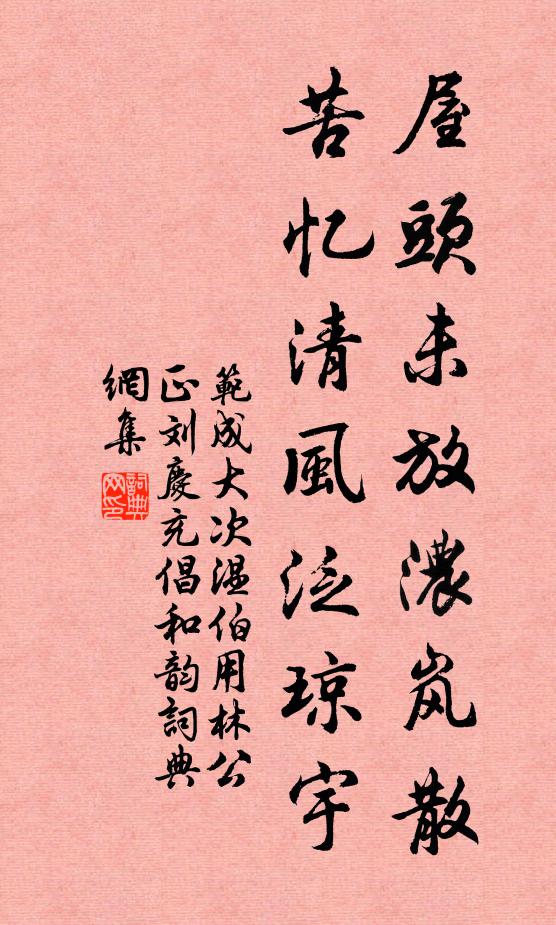 屋頭未放濃岚散
苦忆清風泛琼宇
範成大次温伯用林公
正刘慶充倡和韵詞典
網集
詞典网印